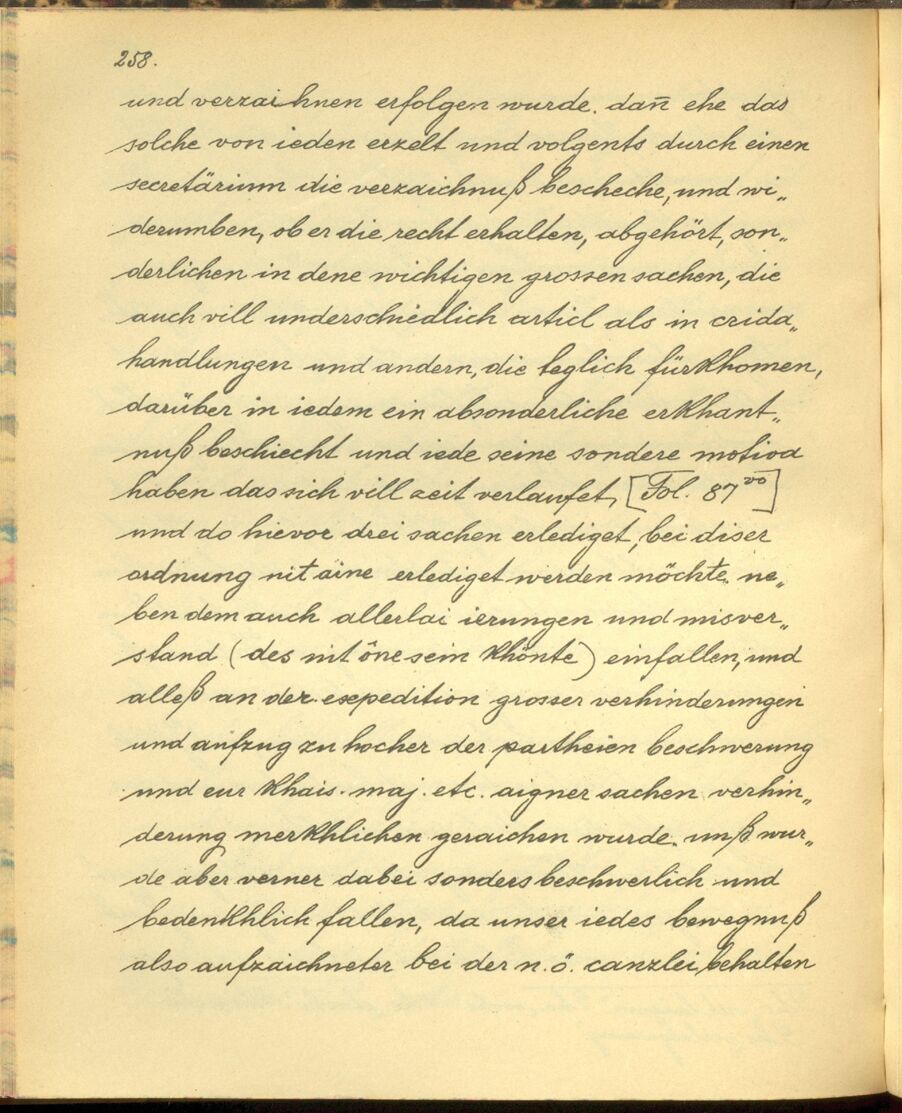 258.
und verzaichnen erfolgen wurde. dan̄ ehe das
solche von ieden erzelt und volgents durch einen
secretärium die verzaichnuß bescheche, und wi„
derumben, ob er die recht erhalten, abgehört, son„
derlichen in dene wichtigen grossen sachen, die
auch vill underschiedlich articl als in crida„
handlungen und andern, die teglich fürkhomen,
darüber in iedem ein absonderliche erkhant„
nuß beschiecht und iede seine sondere motiva
haben das sich vill zeit verlaufet, [Fol. 87vo]
und do hievor drei sachen erlediget, bei diser
ordnung nit aine erlediget werden möchte. ne„
ben dem auch allerlai ierungen und misver„
stand (des nit öne sein khönte) einfallen, und
alleß an der expedition grosser verhinderungen
und aufzug zu hocher der partheien beschwerung
und eur khais. maj. etc. aigner sachen verhin„
derung merkhlichen geraichen wurde. unß wur„
de aber verner dabei sonders beschwerlich und
bedenkhlich fallen, da unser iedes bewegnuß
also aufzaichneter bei der n. ö. canzlei, behalten